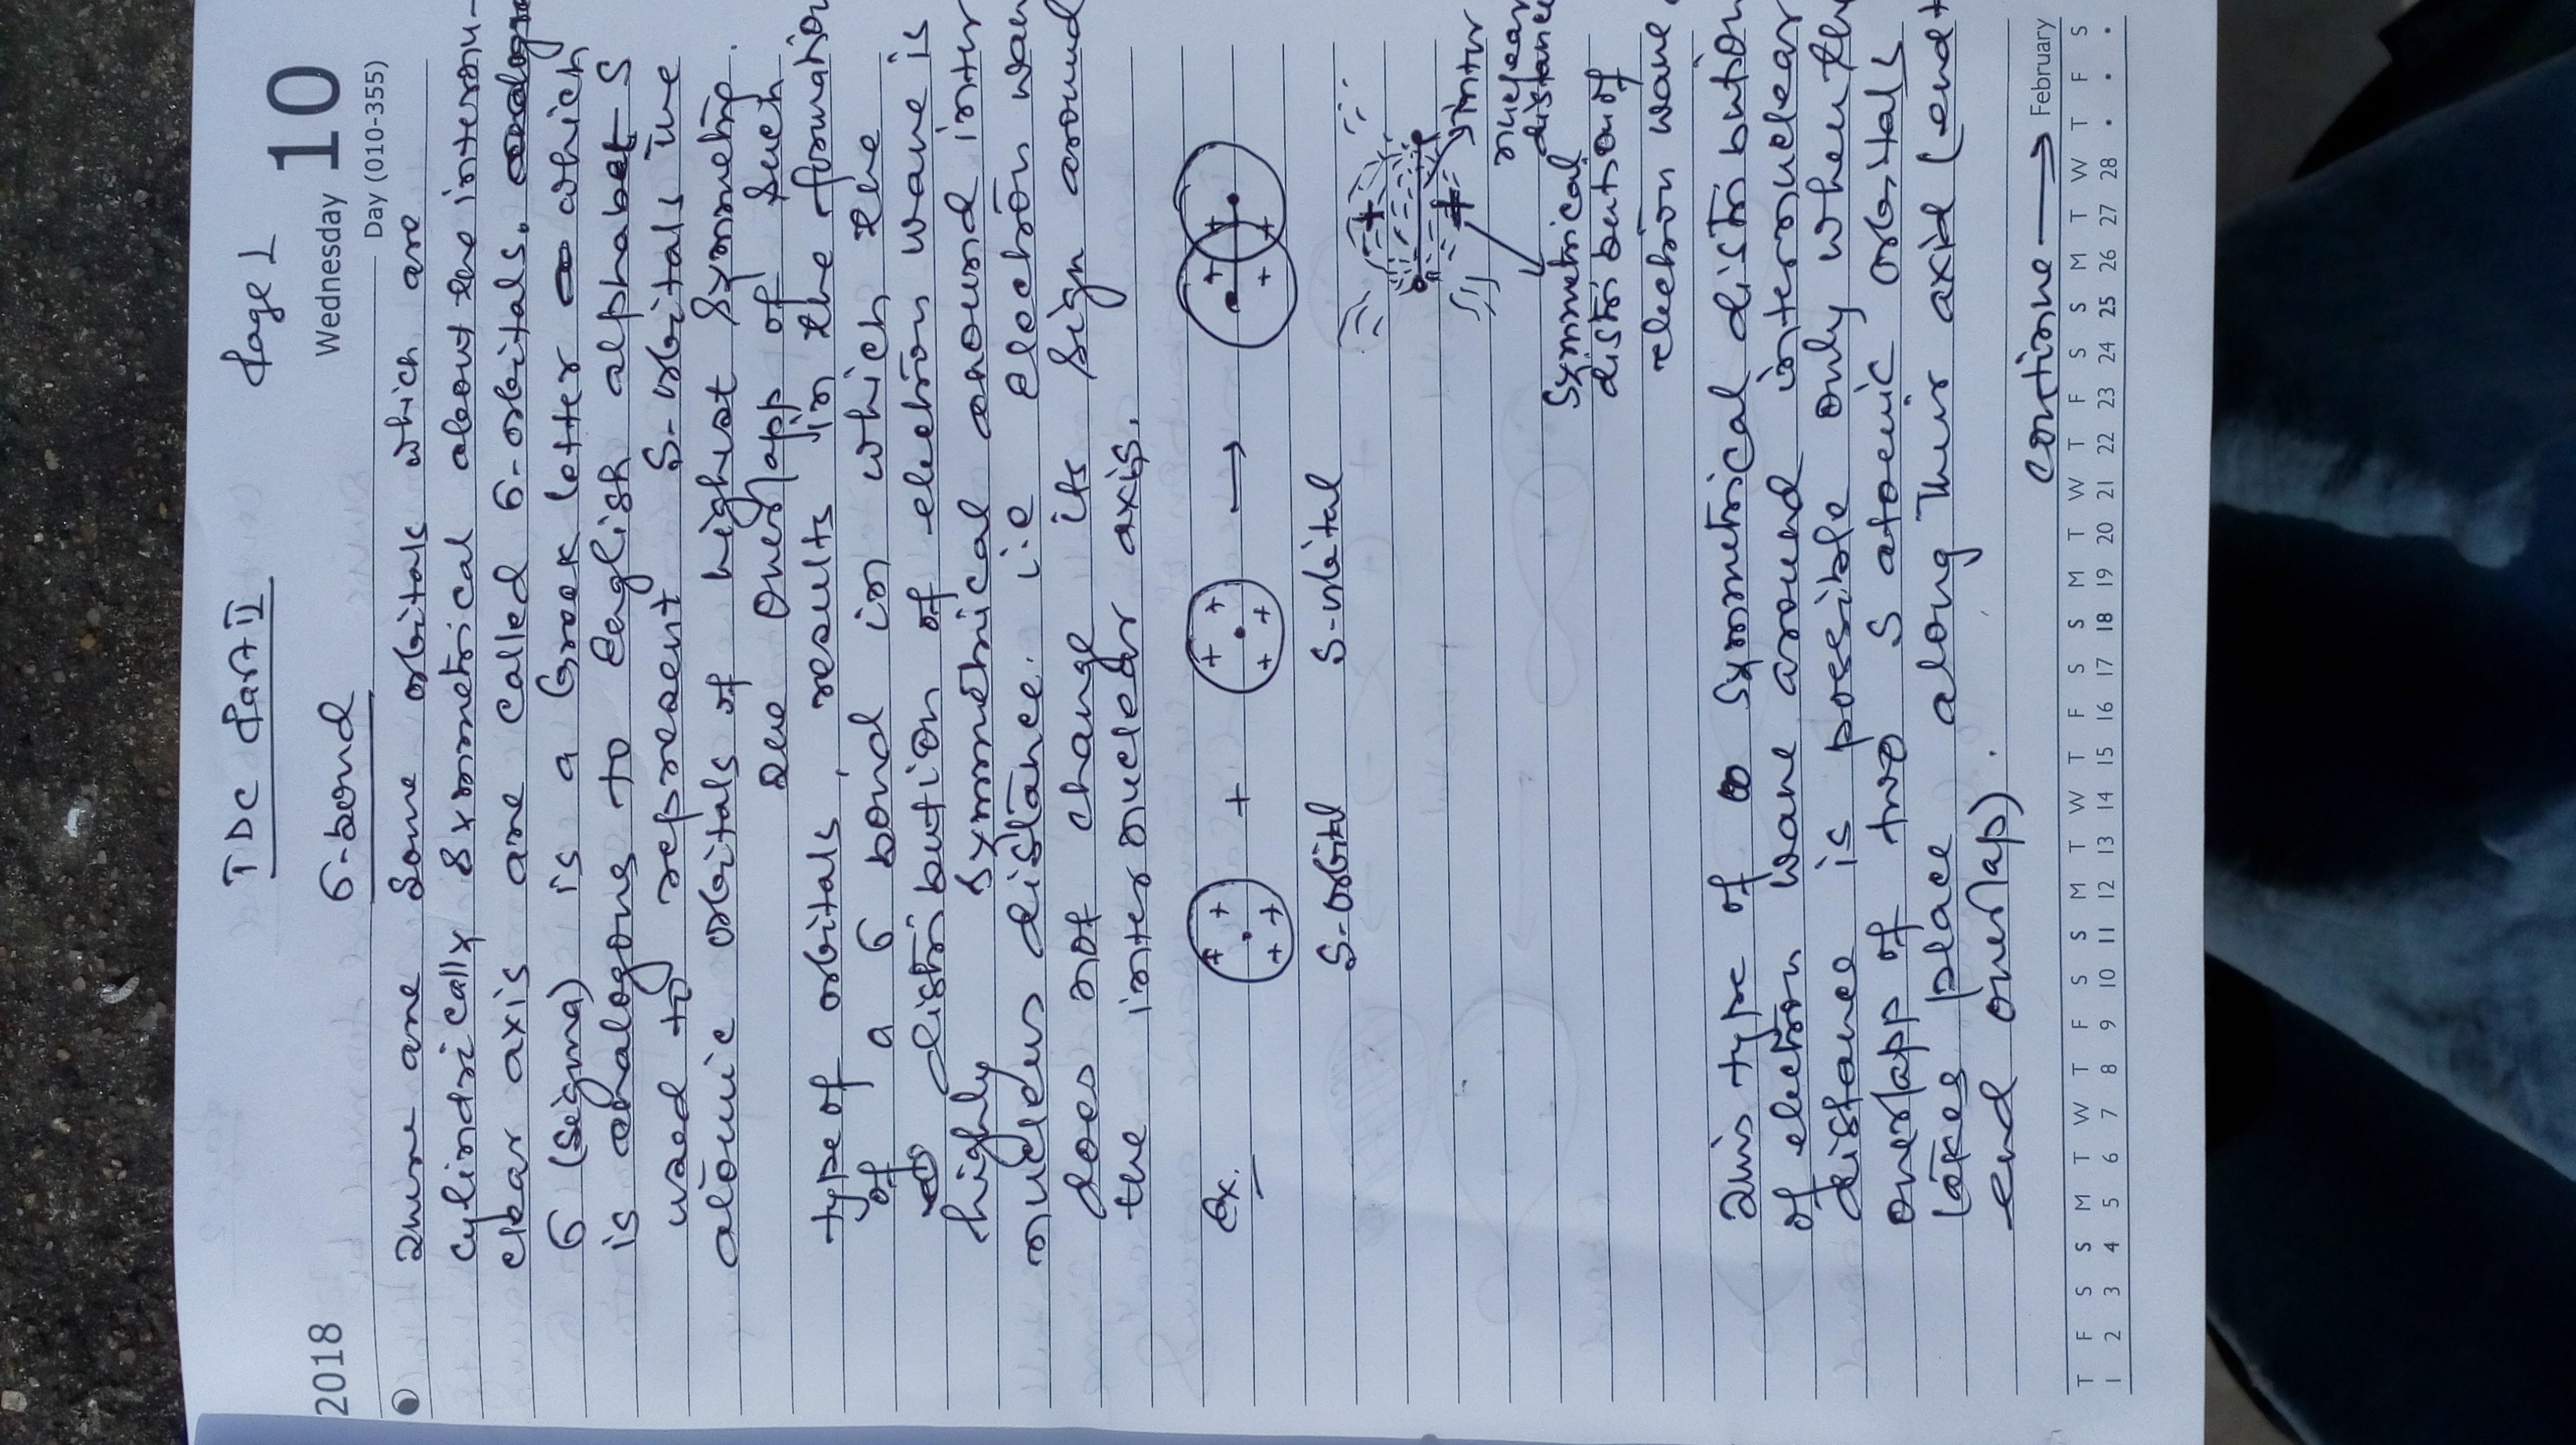 TDC Part II Page 1
2018
Wednesday 10
Day (010-355)
6-bond
There are some orbitals which are
cylindrically symmetrical about the internu-
clear axis are called 6-orbitals.
6 (sigma) is a Greek letter which
is analogous to English alphabet S
used to represent S-orbitals the
atomic orbitals of highest symmetry.
The overlapp of such
type of orbitals results in the formation
of a 6 bond in which the
distribution of electron wave is
highly symmetrical around inter
nucleus distance. i.e electron wave
does not change its sign around
the internuclear axis.
Ex. + →
S-orbital S-orbital
inter
nuclear
distance
Symmetrical
distribution of
electron wave.
This type of symmetrical distribution
of electron wave around internuclear
distance is possible only when the
overlapp of two S atomic orbitals
takes place along their axid (end to
end overlap).
continue → February
T F S S M T W T F S S M T W T F S S M T W T F S S M T W T F S
1 2 3 4 5 6 7 8 9 10 11 12 13 14 15 16 17 18 19 20 21 22 23 24 25 26 27 28 . . .